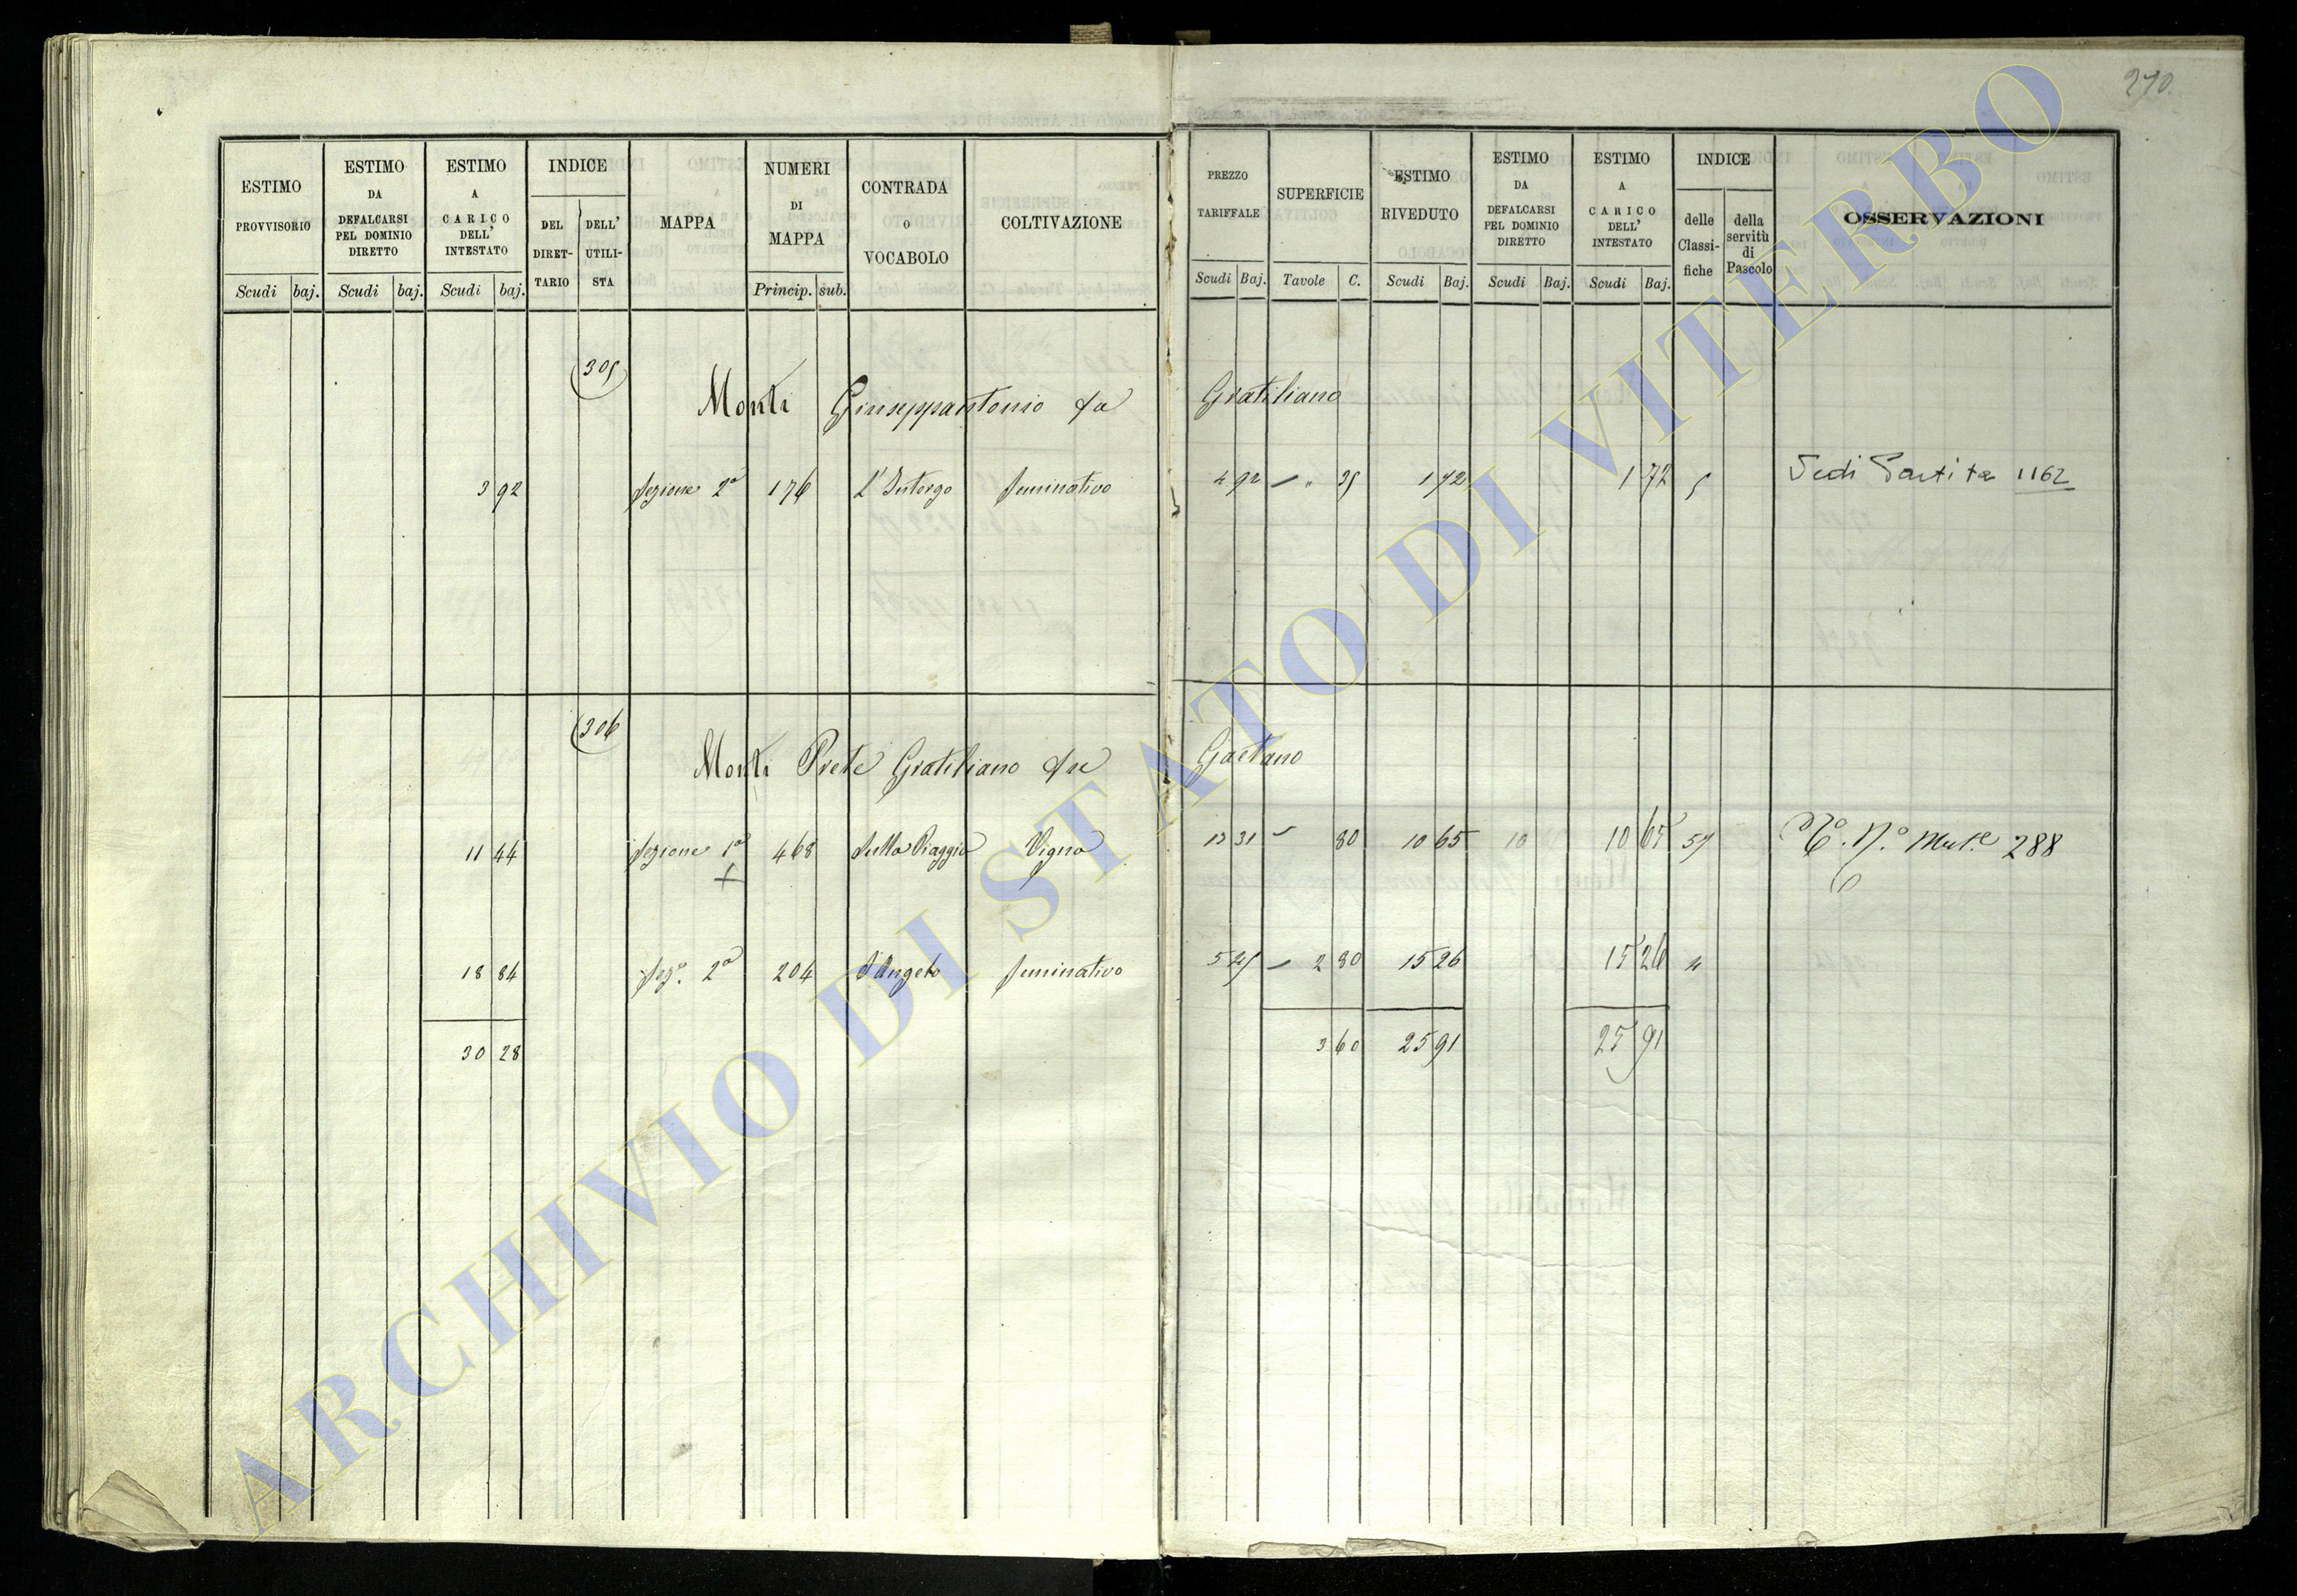 270.
ESTIMO PROVVISORIO Scudi baj.
ESTIMO DA DEFALCARSI PEL DOMINIO DIRETTO Scudi baj.
ESTIMO A CARICO DELL' INTESTATO Scudi baj.
INDICE DEL DIRET-TARIO DELL' UTILI-STA
MAPPA
NUMERI DI MAPPA Princip. sub.
CONTRADA o VOCABOLO
COLTIVAZIONE
PREZZO TARIFFALE Scudi Baj.
SUPERFICIE Tavole C.
ESTIMO RIVEDUTO Scudi Baj.
ESTIMO DA DEFALCARSI PEL DOMINIO DIRETTO Scudi Baj.
ESTIMO A CARICO DELL' INTESTATO Scudi Baj.
INDICE delle Classi-fiche della servitù di Pascolo
OSSERVAZIONI
305
Monti Giuseppantonio fu Gratiliano
3 92 Sezione 2a 176 Seminativo 4 92 35 1 72 1 72 5 Vedi Partita 1162
306
Monti Prete Gratiliano fu Gaetano
11 44 Sezione 1a 468 Vigna 13 31 80 10 65 10 10 65 N.o 288
18 84 Sez.e 2a 204 S. Angelo Seminativo 5 45 2 80 15 26 15 26 4
30 28 3 60 25 91 25 91
ARCHIVIO DI STATO DI VITERBO